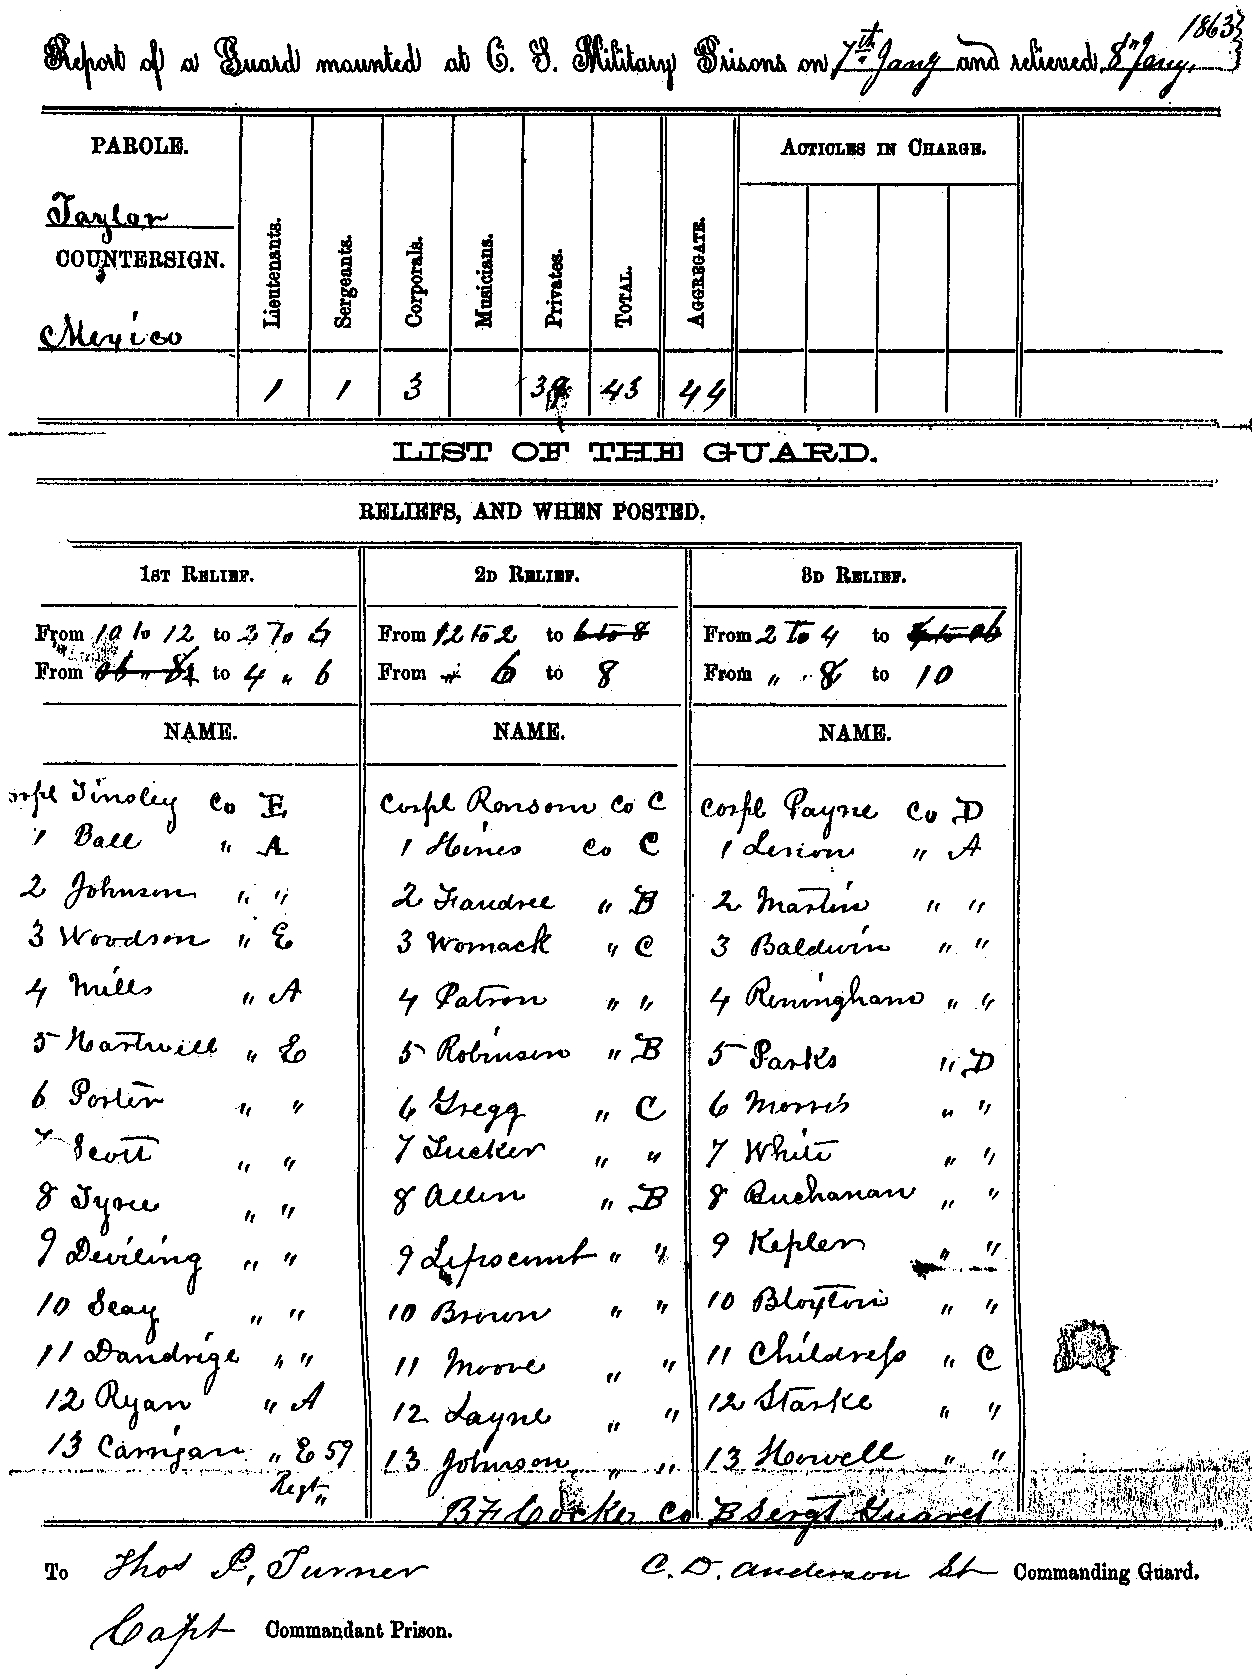 1863
Report of a Guard mounted at C. S. Military Prisons on 7th Jany and relieved 8th Jany.
PAROLE.
Taylor
COUNTERSIGN.
Mexico
Lieutenants. Sergeants. Corporals. Musicians. Privates. TOTAL. AGGREGATE.
ACTICLES IN CHARGE.
1 1 3 39 43 44
LIST OF THE GUARD.
RELIEFS, AND WHEN POSTED.
1ST RELIEF. 2D RELIEF. 3D RELIEF.
From 10 to 12 to 2 To 4 From 12 to 2 to 6 to 8 From 2 To 4 to
From to 4 " 6 From " 6 to 8 From " " 8 to 10
NAME. NAME. NAME.
Corpl Tinsley Co E Corpl Ransom Co C Corpl Payne Co D
1 Ball " A 1 Hines Co C 1 " A
2 Johnson " " 2 Faudree " B 2 Martin " "
3 Woodson " E 3 Womack " C 3 Baldwin " "
4 Mills " A 4 Patron " " 4 Reningham " "
5 Hartwell " E 5 Robinson " B 5 Parks " D
6 Porter " " 6 Gregg " C 6 Morris " "
7 Scott " " 7 Tucker " " 7 White " "
8 Tyree " " 8 Allen " B 8 Buchanan " "
9 Deviling " " 9 Lipscomb " " 9 Kepler " "
10 Seay " " 10 Brown " " 10 Bloxton " "
11 Dandrige " " 11 Moore " " 11 Childress " C
12 Ryan " A 12 Layne " " 12 Starke " "
13 Carrigan " E 59 13 Johnson " " 13 Howell " "
Regt "
B F Cocker Co B Sergt Guard
To Thos P. Turner C. D. Anderson Lt Commanding Guard.
Capt Commandant Prison.